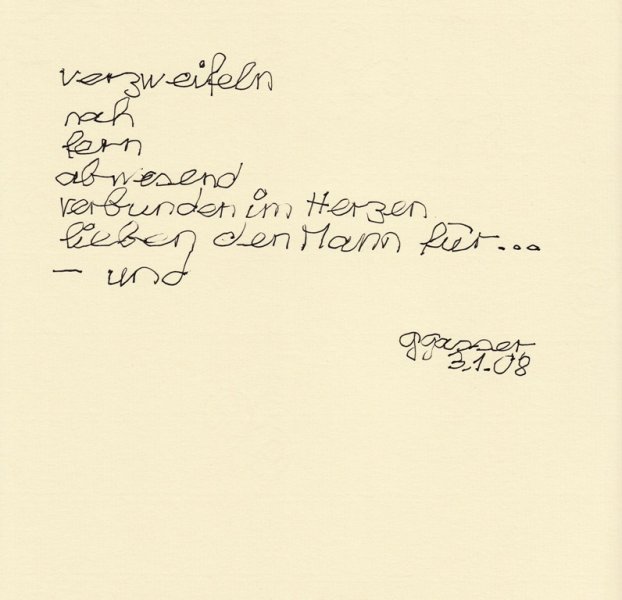 verzweifeln
nah
fern
abwesend
verbunden im Herzen
lieben den Mann für...
– und
ggasser
3.1.08